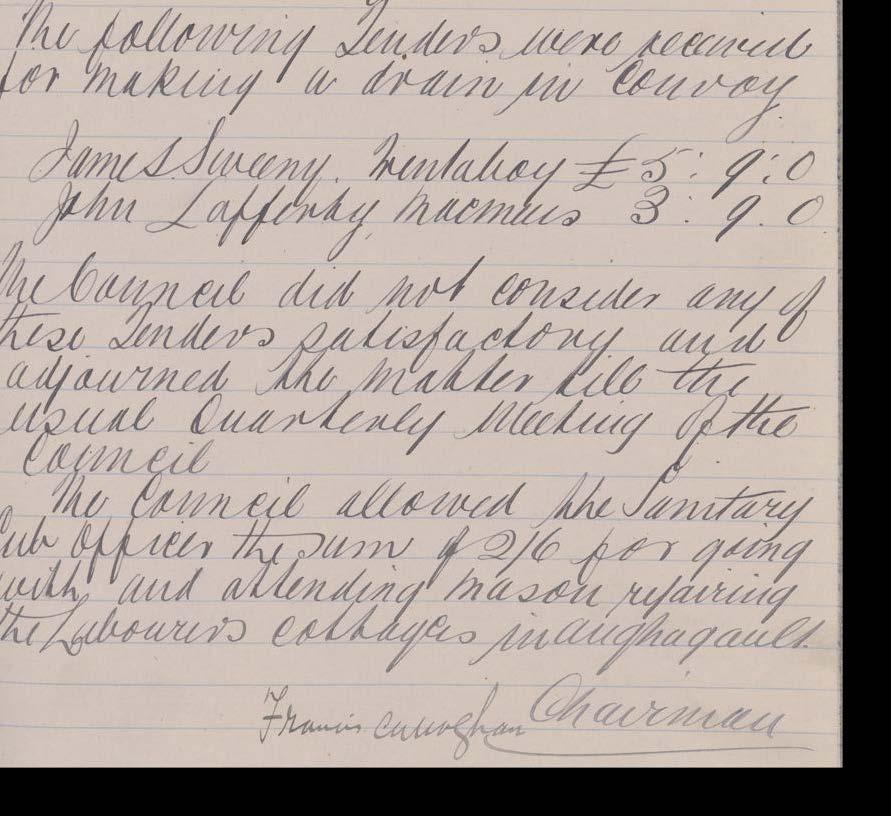 The following Tenders were received
for making a drain in Convoy
James Sweeny. Trentaboy £5: 9: 0
John Lafferty, Macmeus 3: 9. 0
The Council did not consider any of
these Tenders satisfactory and
adjourned the matter till the
usual Quarterly Meeting of the
Council
The Council allowed the Sanitary
Sub Officer the sum of 2/6 for going
with and attending mason repairing
the Labourers cottages in Aughagault.
Francis Chairman